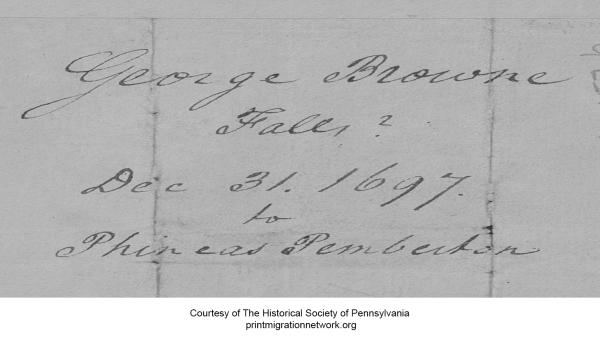 George Browne
Falls?
Dec 31. 1697.
to
Phineas Pemberton
Courtesy of The Historical Society of Pennsylvania
printmigrationnetwork.org